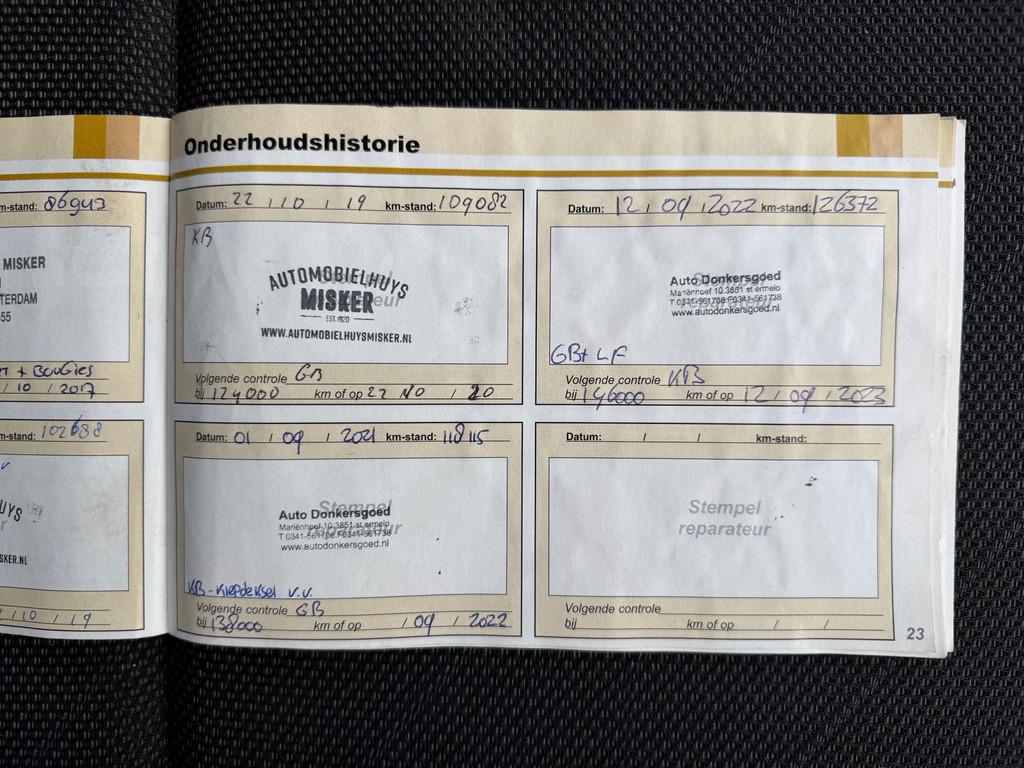 Onderhoudshistorie
m-stand: 86943
MISKER
TERDAM
55
+ BOUGIES
/ 10 / 2017
m-stand: 102638
UYS
SKER.NL
/ 10 / 19
Datum: 22 / 10 / 19 km-stand: 109082
KB
AUTOMOBIELHUYS
MISKER
EST. 1920
WWW.AUTOMOBIELHUYSMISKER.NL
Volgende controle GB
bij 124000 km of op 22 / 10 / 20
Datum: 01 / 09 / 2021 km-stand: 118115
Stempel
reparateur
Auto Donkersgoed
Mariënhoef 10 3851 st ermelo
T 0341-561708 F0341-561738
www.autodonkersgoed.nl
KB - Klepdeksel v.v.
Volgende controle GB
bij 138000 km of op / 09 / 2022
Datum: 12 / 09 / 2022 km-stand: 126372
Stempel
reparateur
Auto Donkersgoed
Mariënhoef 10 3851 st ermelo
T 0341-561708 F0341-561738
www.autodonkersgoed.nl
GB+ LF
Volgende controle KB
bij 146000 km of op 12 / 09 / 2023
Datum: / / km-stand:
Stempel
reparateur
Volgende controle
bij km of op / /
23